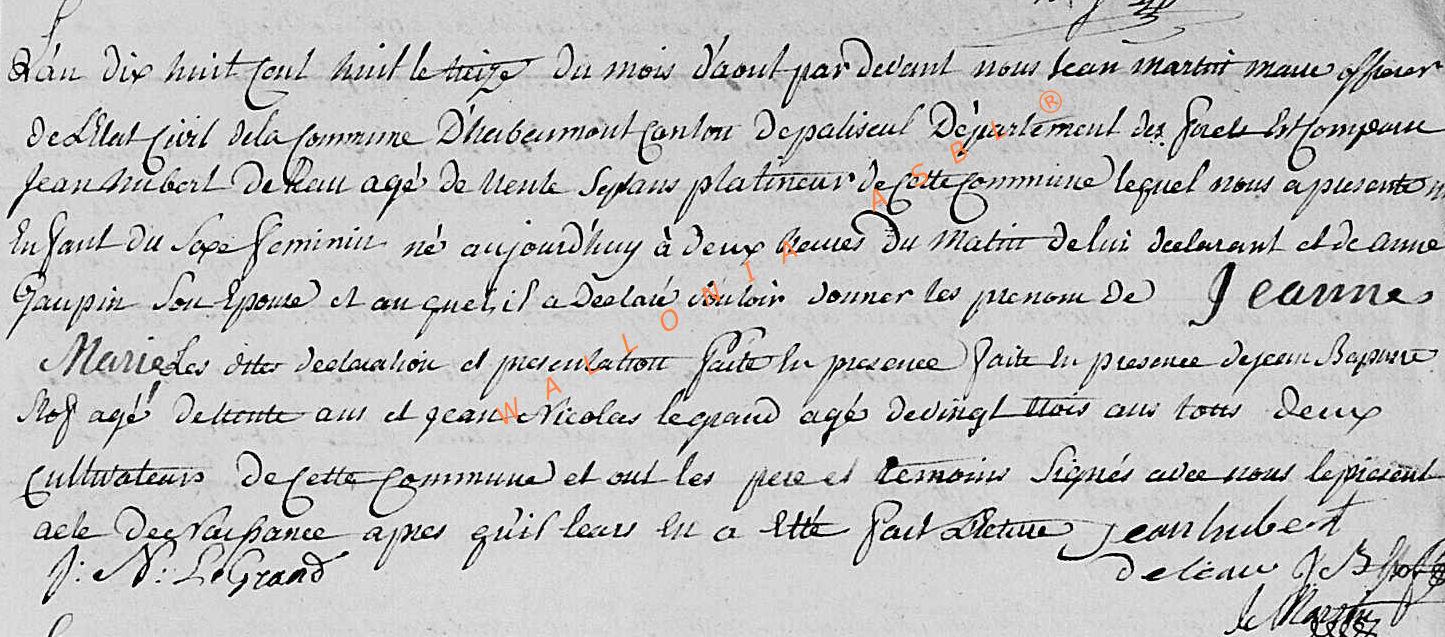 L'an dix huit cent huit le treize du mois d'aout par devant nous Jean Martin maire officier
de L'Etat Civil de la Commune D'herbeumont Canton de paliseul Département des forets Est Comparu
Jean hubert De Leau agé de trente Sept ans platineur de Cette Commune lequel nous a presenté
Enfant du Sexe feminin né aujourd'huy à deux heures du Matin de lui declarant et de anne
Gaupin Son Epouse et au quel il a Declaré vouloir donner les prenom de Jeanne
Marie Les dittes declaration et presentation faite En presence faite En presence de jean Baptiste
agé de trente ans et jean Nicolas legrand agé de vingt trois ans tous deux
Cultivateurs de Cette Commune et ont les pere et temoins Signés avec nous le présent
acte De Naissance apres qu'il leurs En a Etté fait Lecture jean hubert
J: N: Le Grand de leau J B
Martin
WALLONIA ASBL ®